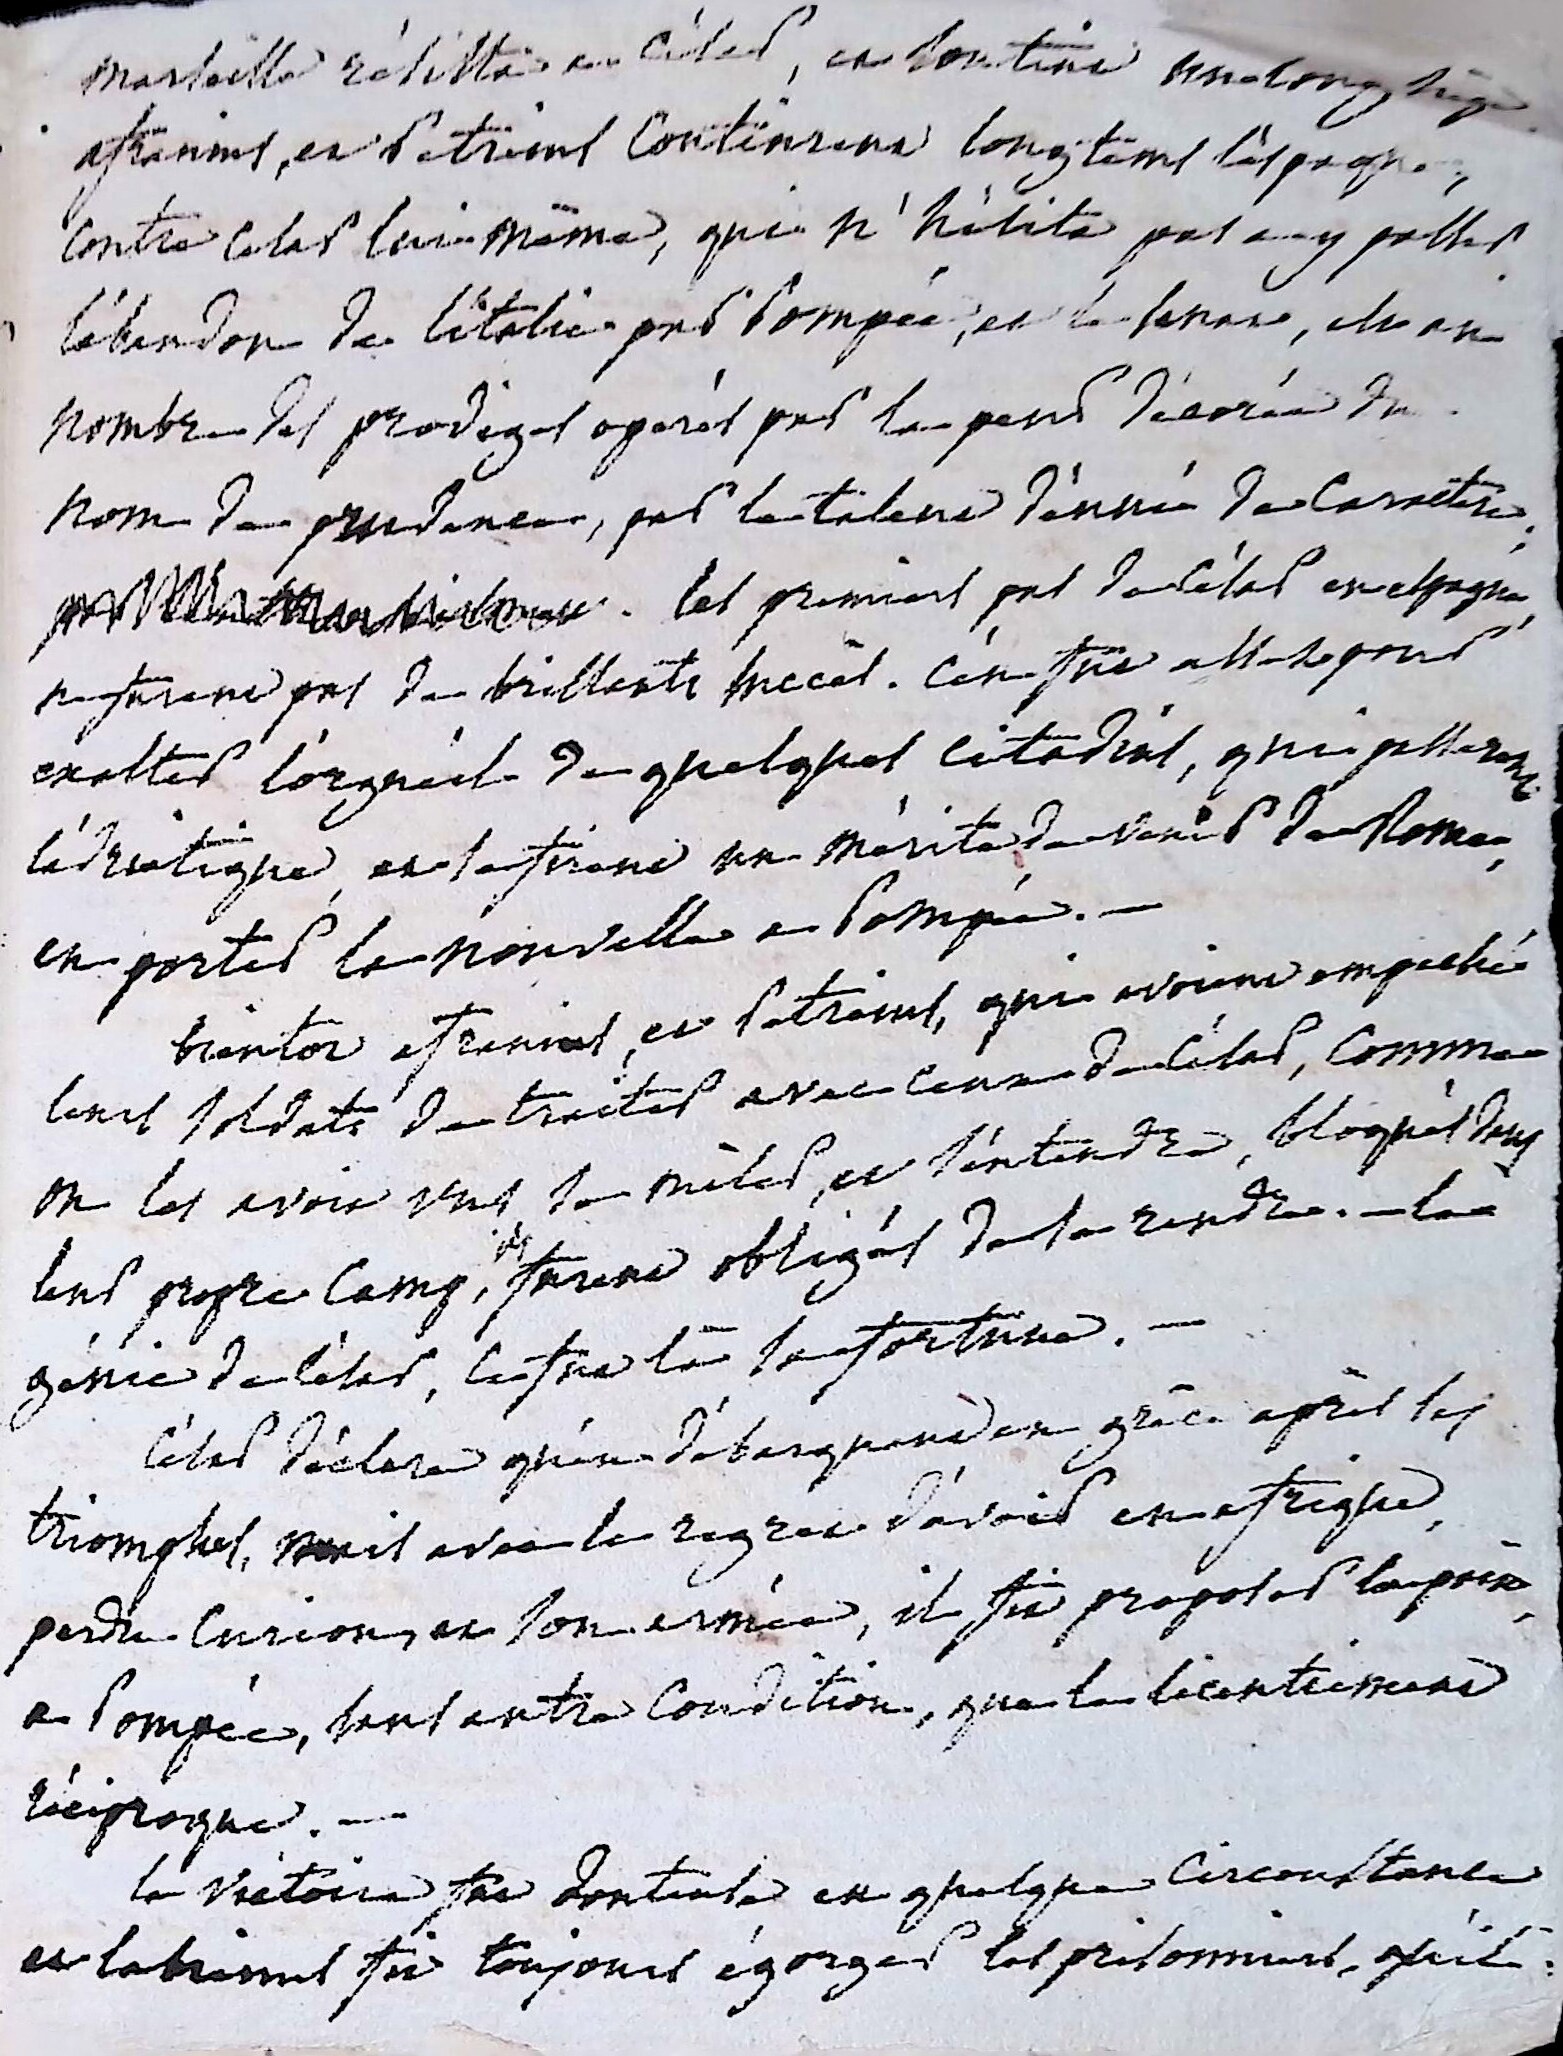 marseille résista a César, et soutint un long siège
afranius, et Petreius continrent longtems l'espagne,
contre César lui même, qui n'hésita pas a y passer
l'abandon de l'italie par Pompée, et le senat, est au
nombre des prodiges operés par la peur décorée du
nom de prudence, par le talent dénué de caractère,
par. les premiers pas de César en espagne,
ne furent pas de brillants succès. C'en fut assez pour
exalter l'orgueil de quelques citadins, qui passerent
l'adriatique, et se firent un mérite de venir de Rome,
en porter la nouvelle a Pompée. —
bientot afranius, et Petreius, qui avoient empeché
leurs soldats de traiter avec ceux de César, comme
on les avoit vus se mêler, et s'entendre, bloqués dans
leur propre camp, ils furent obligés de se rendre. — le
génie de César, ce fut là sa fortune. —
César déclare qu'en débarquant en grèce après les
triomphes, mais avec le regret d'avoir en afrique,
perdu Curion, et son armée, il fit proposer la paix,
a Pompée, sans autre condition, que le licentiement
réciproque. —
la victoire fut douteuse en quelque circonstance
et labienus fit toujours égorger les prisonniers, qu'il